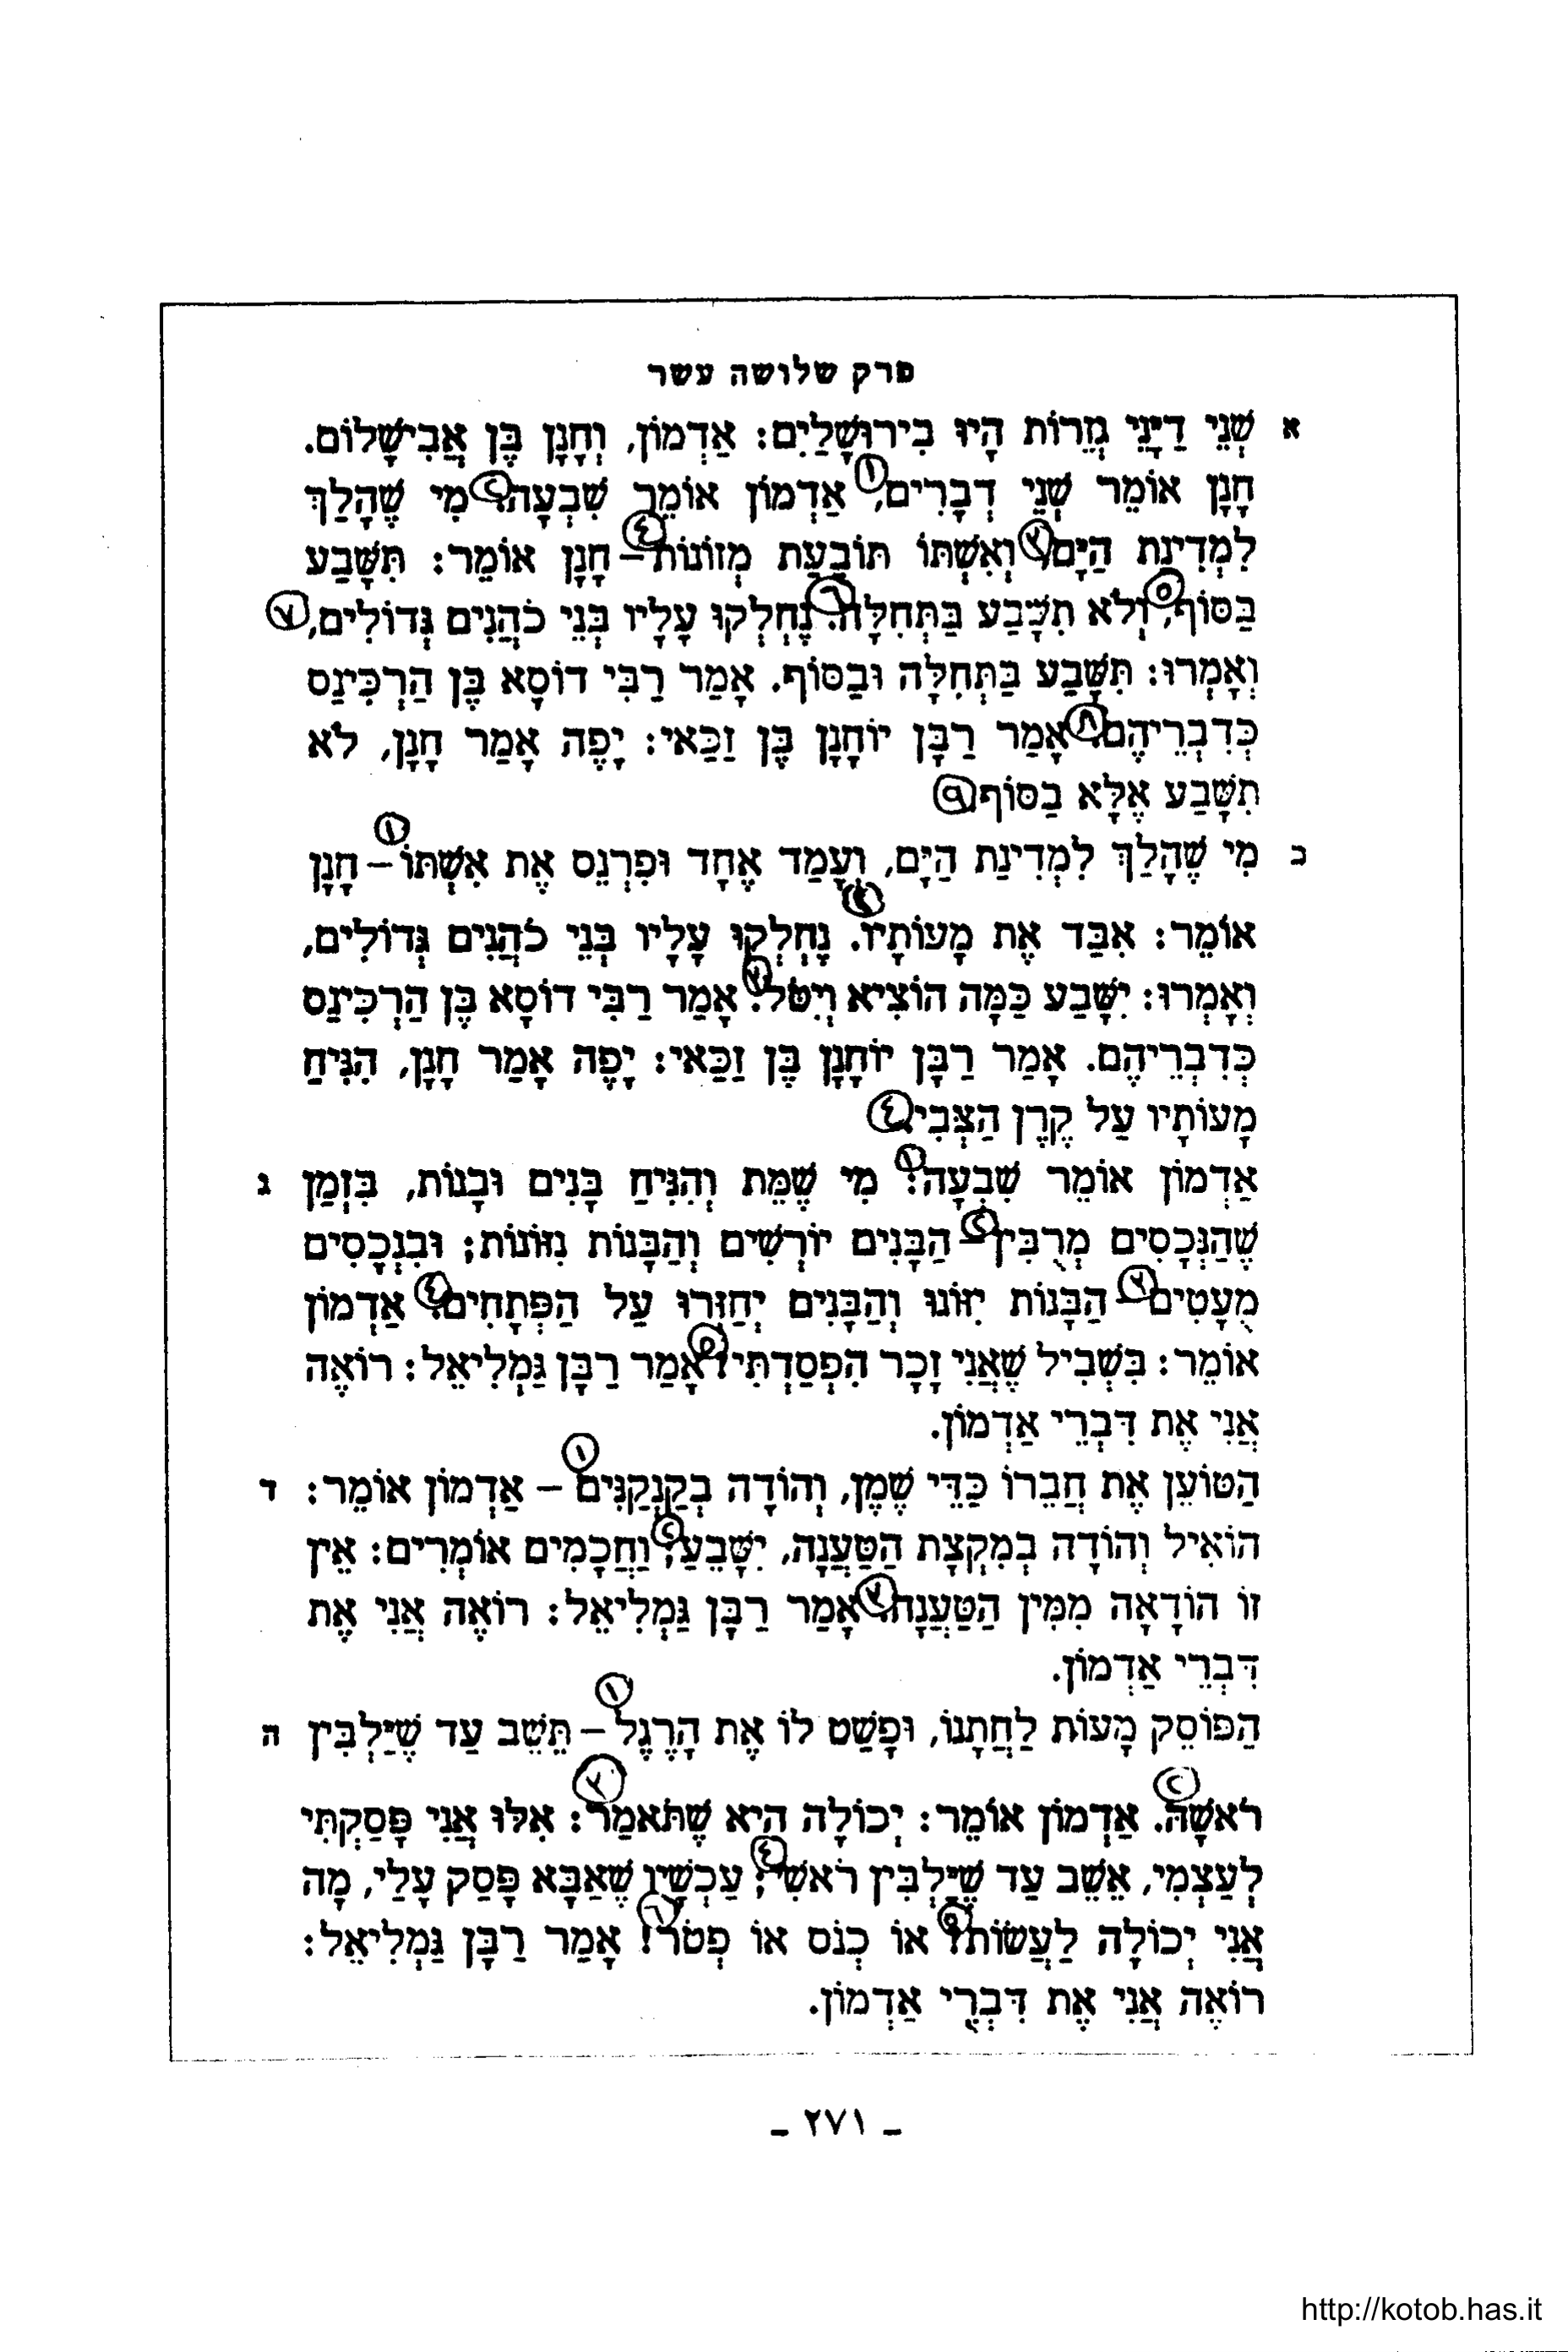 פרק שלושה עשר
א שְׁנֵי דַיָּנֵי גְזֵרוֹת הָיוּ בִירוּשָׁלַיִם: אַדְמוֹן, וְחָנָן בֶּן אֲבִישָׁלוֹם.
חָנָן אוֹמֵר שְׁנֵי דְבָרִים, (١) אַדְמוֹן אוֹמֵר שִׁבְעָה. (٢) מִי שֶׁהָלַךְ
לִמְדִינַת הַיָּם, (٣) וְאִשְׁתּוֹ תוֹבַעַת מְזוֹנוֹת (٤) – חָנָן אוֹמֵר: תִּשָּׁבַע
בַּסּוֹף, (٥) וְלֹא תִשָּׁבַע בַּתְּחִלָּה. (٦) נֶחְלְקוּ עָלָיו בְּנֵי כֹהֲנִים גְּדוֹלִים, (٧)
וְאָמְרוּ: תִּשָּׁבַע בַּתְּחִלָּה וּבַסּוֹף. אָמַר רַבִּי דוֹסָא בֶּן הַרְכִּינַס
כְּדִבְרֵיהֶם. (٨) אָמַר רַבָּן יוֹחָנָן בֶּן זַכַּאי: יָפֶה אָמַר חָנָן, לֹא
תִשָּׁבַע אֶלָּא בַסּוֹף. (٩)
ב מִי שֶׁהָלַךְ לִמְדִינַת הַיָּם, וְעָמַד אֶחָד וּפִרְנֵס אֶת אִשְׁתּוֹ (١) – חָנָן
אוֹמֵר: אִבַּד אֶת מָעוֹתָיו. (٢) נֶחְלְקוּ עָלָיו בְּנֵי כֹהֲנִים גְּדוֹלִים,
וְאָמְרוּ: יִשָּׁבַע כַּמָּה הוֹצִיא וְיִטֹּל. (٣) אָמַר רַבִּי דוֹסָא בֶּן הַרְכִּינַס
כְּדִבְרֵיהֶם. אָמַר רַבָּן יוֹחָנָן בֶּן זַכַּאי: יָפֶה אָמַר חָנָן, הִנִּיחַ
מָעוֹתָיו עַל קֶרֶן הַצְּבִי. (٤)
ג אַדְמוֹן אוֹמֵר שִׁבְעָה: (١) מִי שֶׁמֵּת וְהִנִּיחַ בָּנִים וּבָנוֹת, בִּזְמַן
שֶׁהַנְּכָסִים מְרֻבִּין (٢) – הַבָּנִים יוֹרְשִׁים וְהַבָּנוֹת נִזּוֹנוֹת; וּבִנְכָסִים
מֻעָטִים (٣) – הַבָּנוֹת יִזּוֹנוּ וְהַבָּנִים יְחַזְּרוּ עַל הַפְּתָחִים. (٤) אַדְמוֹן
אוֹמֵר: בִּשְׁבִיל שֶׁאֲנִי זָכָר הִפְסַדְתִּי? (٥) אָמַר רַבָּן גַּמְלִיאֵל: רוֹאֶה
אֲנִי אֶת דִּבְרֵי אַדְמוֹן.
ד הַטּוֹעֵן אֶת חֲבֵרוֹ כַּדֵּי שֶׁמֶן, וְהוֹדָה בְקַנְקַנִּים (١) – אַדְמוֹן אוֹמֵר:
הוֹאִיל וְהוֹדָה בְמִקְצָת הַטַּעֲנָה, יִשָּׁבֵעַ; (٢) וַחֲכָמִים אוֹמְרִים: אֵין
זוֹ הוֹדָאָה מִמִּין הַטַּעֲנָה. (٣) אָמַר רַבָּן גַּמְלִיאֵל: רוֹאֶה אֲנִי אֶת
דִּבְרֵי אַדְמוֹן.
ה הַפּוֹסֵק מָעוֹת לַחֲתָנוֹ, וּפָשַׁט לוֹ אֶת הָרֶגֶל (١) – תֵּשֵׁב עַד שֶׁיַּלְבִּין
רֹאשָׁהּ. (٢) אַדְמוֹן אוֹמֵר: יְכוֹלָה הִיא שֶׁתֹּאמַר: (٣) אִלּוּ אֲנִי פָּסַקְתִּי
לְעַצְמִי, אֵשֵׁב עַד שֶׁיַּלְבִּין רֹאשִׁי; (٤) עַכְשָׁיו שֶׁאַבָּא פָּסַק עָלַי, מָה
אֲנִי יְכוֹלָה לַעֲשׂוֹת? (٥) אוֹ כְנֹס אוֹ פְטֹר! (٦) אָמַר רַבָּן גַּמְלִיאֵל:
רוֹאֶה אֲנִי אֶת דִּבְרֵי אַדְמוֹן.
ـ ٢٧١ ـ
http://kotob.has.it